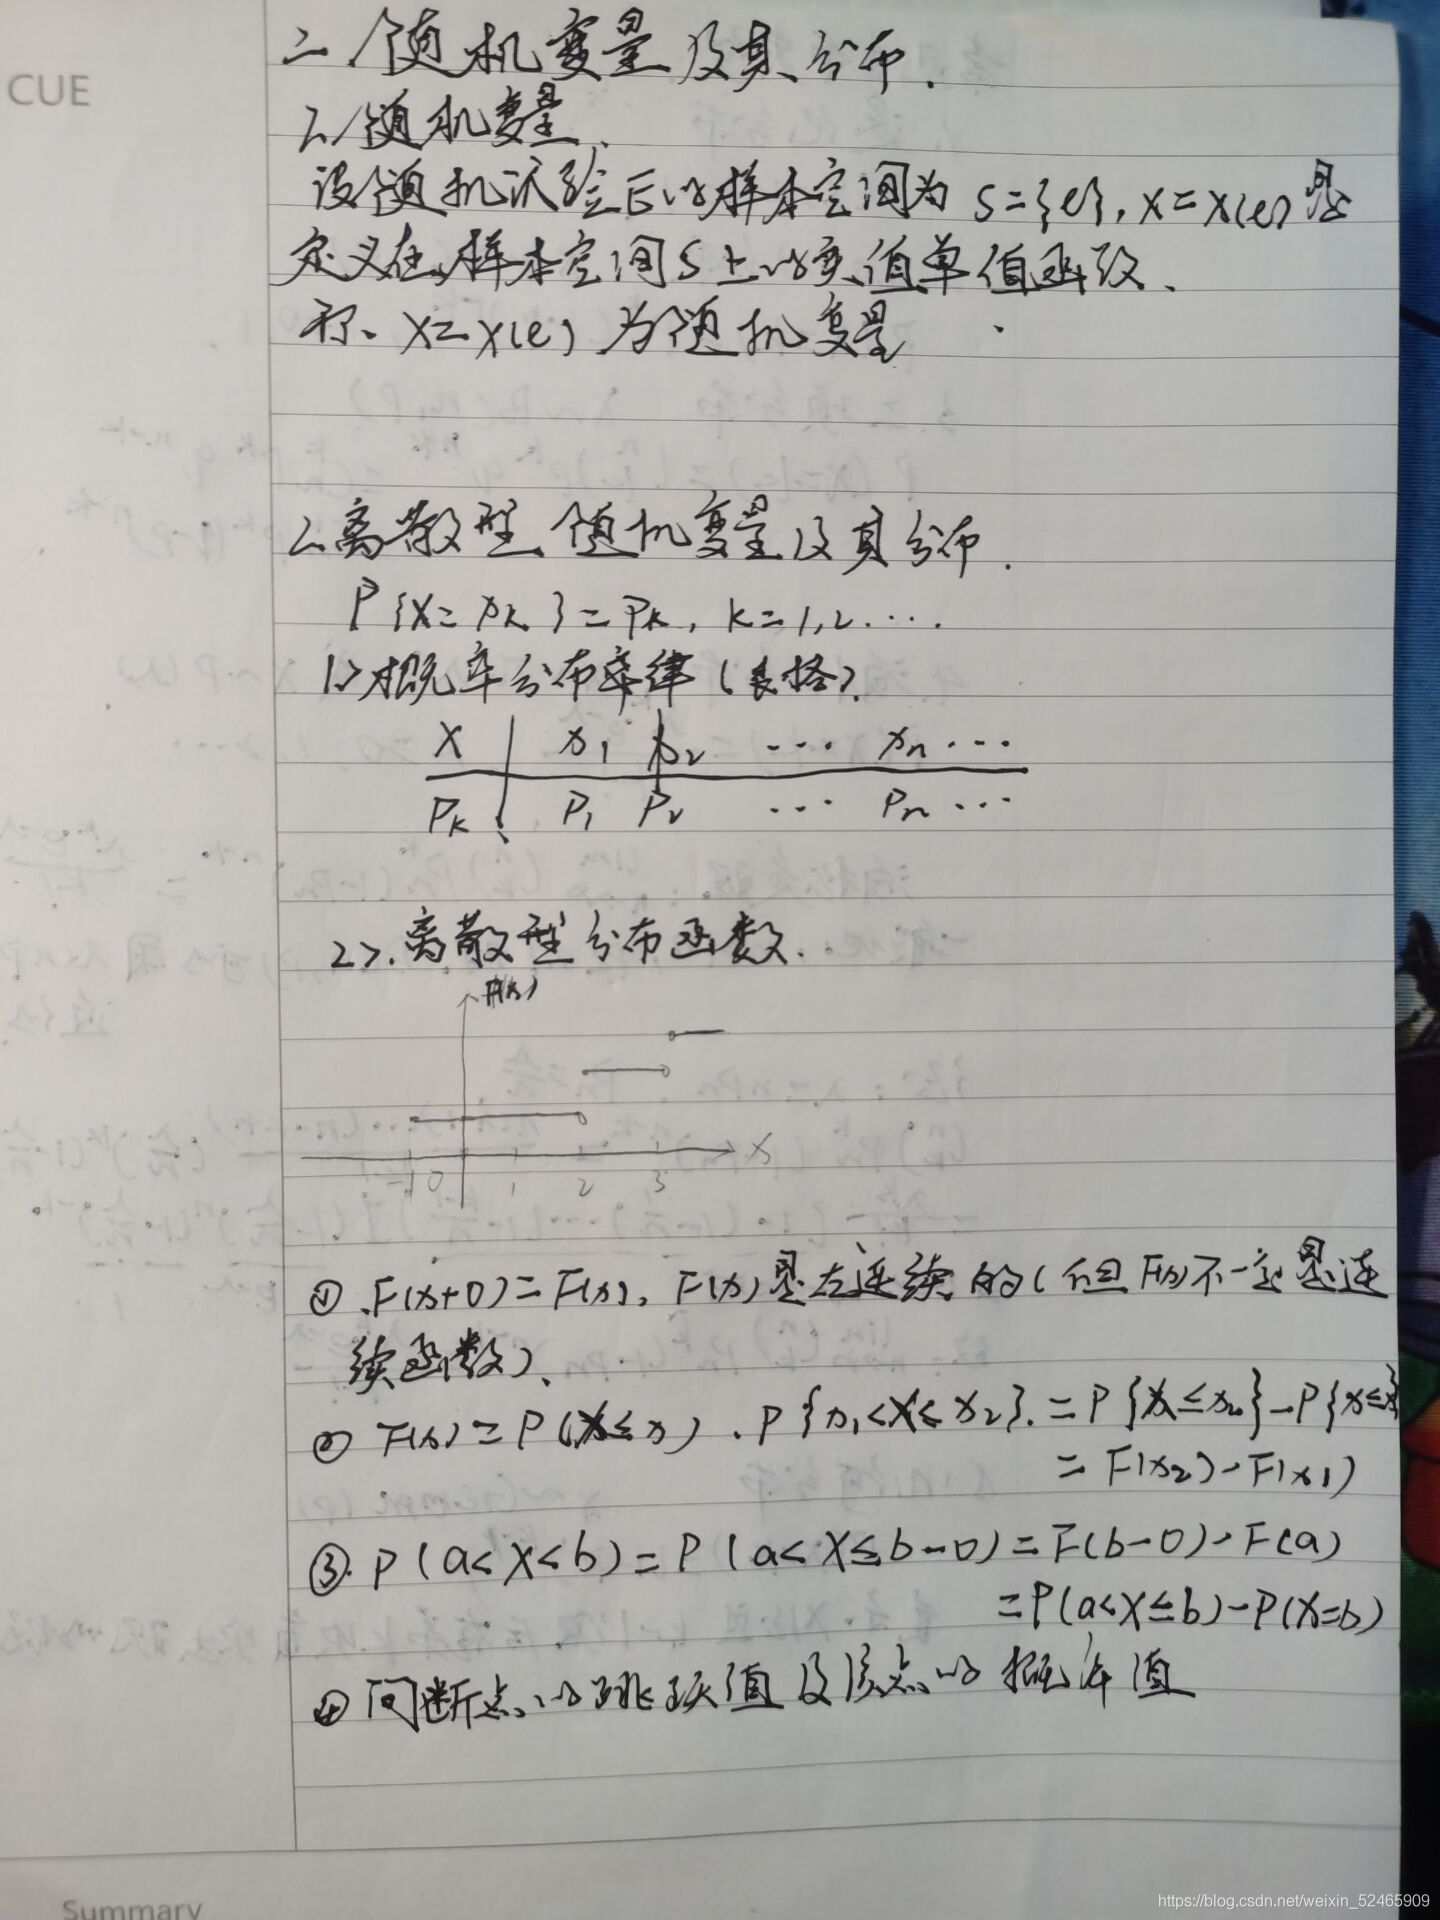 CUE
二、随机变量及其分布.
1、随机变量.
设随机试验E的样本空间为 S={e}, X=X(e) 是
定义在样本空间S上的实值单值函数、
称、X=X(e) 为随机变量
2、离散型随机变量及其分布.
P{X=xk}=Pk, k=1,2....
1>概率分布律(表格).
X x1 x2 ... xn ...
Pk P1 P2 ... Pn ...
2>.离散型分布函数.
F(x)
x
-1 0 1 2 3
① F(x+0)=F(x), F(x)是右连续的(但F(x)不一定是连
续函数)、
② F(x)=P(X≤x). P{x1<X≤x2}.=P{X≤x2}-P{X≤x1}
=F(x2)-F(x1)
③.P(a<X<b)=P(a<X≤b-0)=F(b-0)-F(a)
=P(a<X≤b)-P(X=b)
④ 间断点的跳跃值及该点的概率值
Summary
https://blog.csdn.net/weixin_52465909